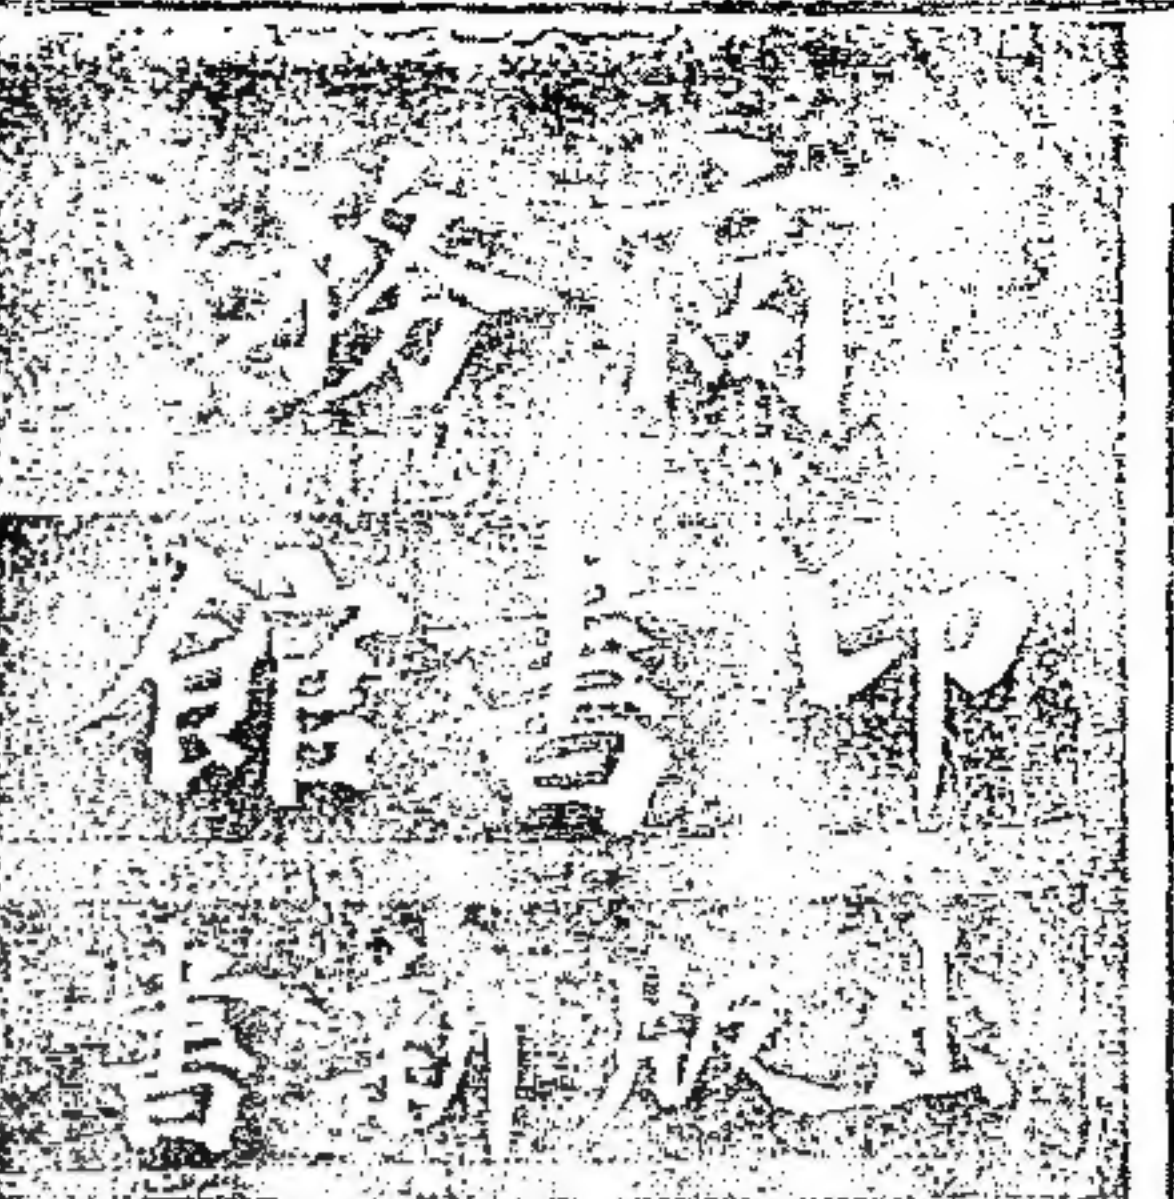 商務
印書館
出版新書